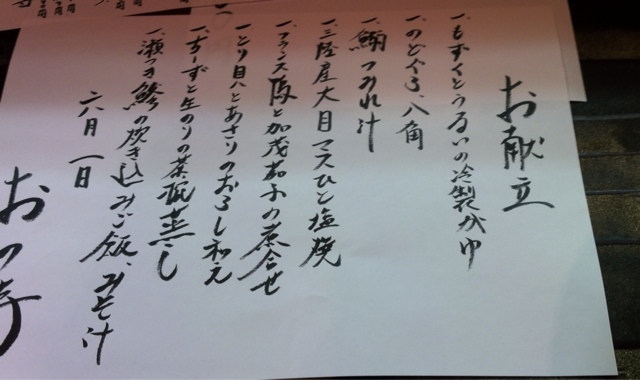 お献立
一、もずくとうるいの冷製がゆ
一、のどぐろ、八角
一、鰯つみれ汁
一、三陸産大目マスひと塩焼
一、フランス鴨と加茂茄子の煮合せ
一、とり貝とあさりのおろし和え
一、ちーずと生のりの茶碗蒸し
一、瀬つき鯵の炊き込みご飯、みそ汁
六月一日